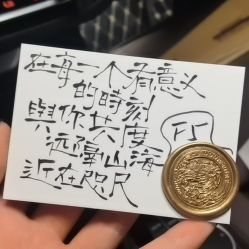 在每一个有意义
的時刻
與你共度
远隔山海
近在咫尺